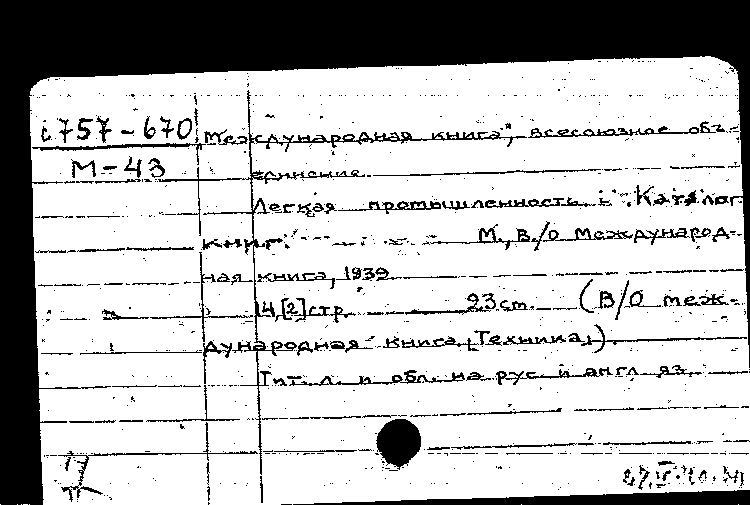 с757-670
М-43
Международная книга", всесоюзное объ-
единение.
Легкая промышленность. Каталог
книг. М., В./О Международ-
ная книга, 1939.
14,[2] стр. 23 см. (В/О меж-
дународная книга. Техника).
Тит. л. и обл. на рус. и англ. яз.
17